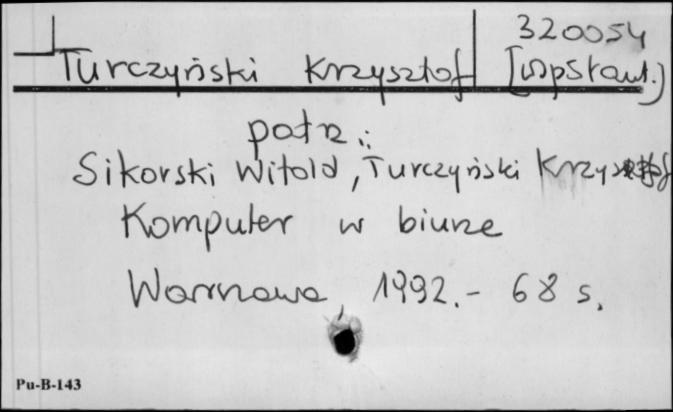 320054
Turczyński Krzysztof [współaut.]
patrz:
Sikorski Witold, Turczyński Krzysztof
Komputer w biurze
Warszawa, 1992.- 68 s.
Pu-B-143